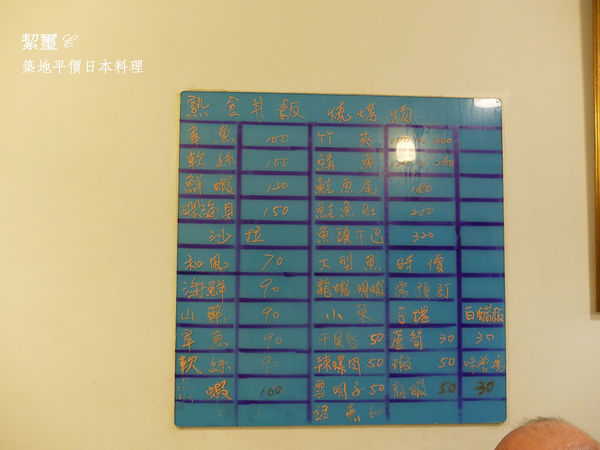 絜璽 C
築地平價日本料理
熟食丼飯 燒烤物
章魚 100 竹夾 200
軟絲 100 鯖魚 260
鮮蝦 120 鮭魚尾 180
深海貝 150 鮭魚肚 200
沙拉 魚頭下巴 320
和風 70 大型魚 時價
海鮮 90 龍蝦.明蝦 需預訂
山藥 90 小菜 手捲 白醋飯
章魚 90 干貝唇 50 蘆筍 30 30
軟絲 9 辣螺肉 50 蝦 50 味噌湯
蝦 100 雪明子 50 50 30